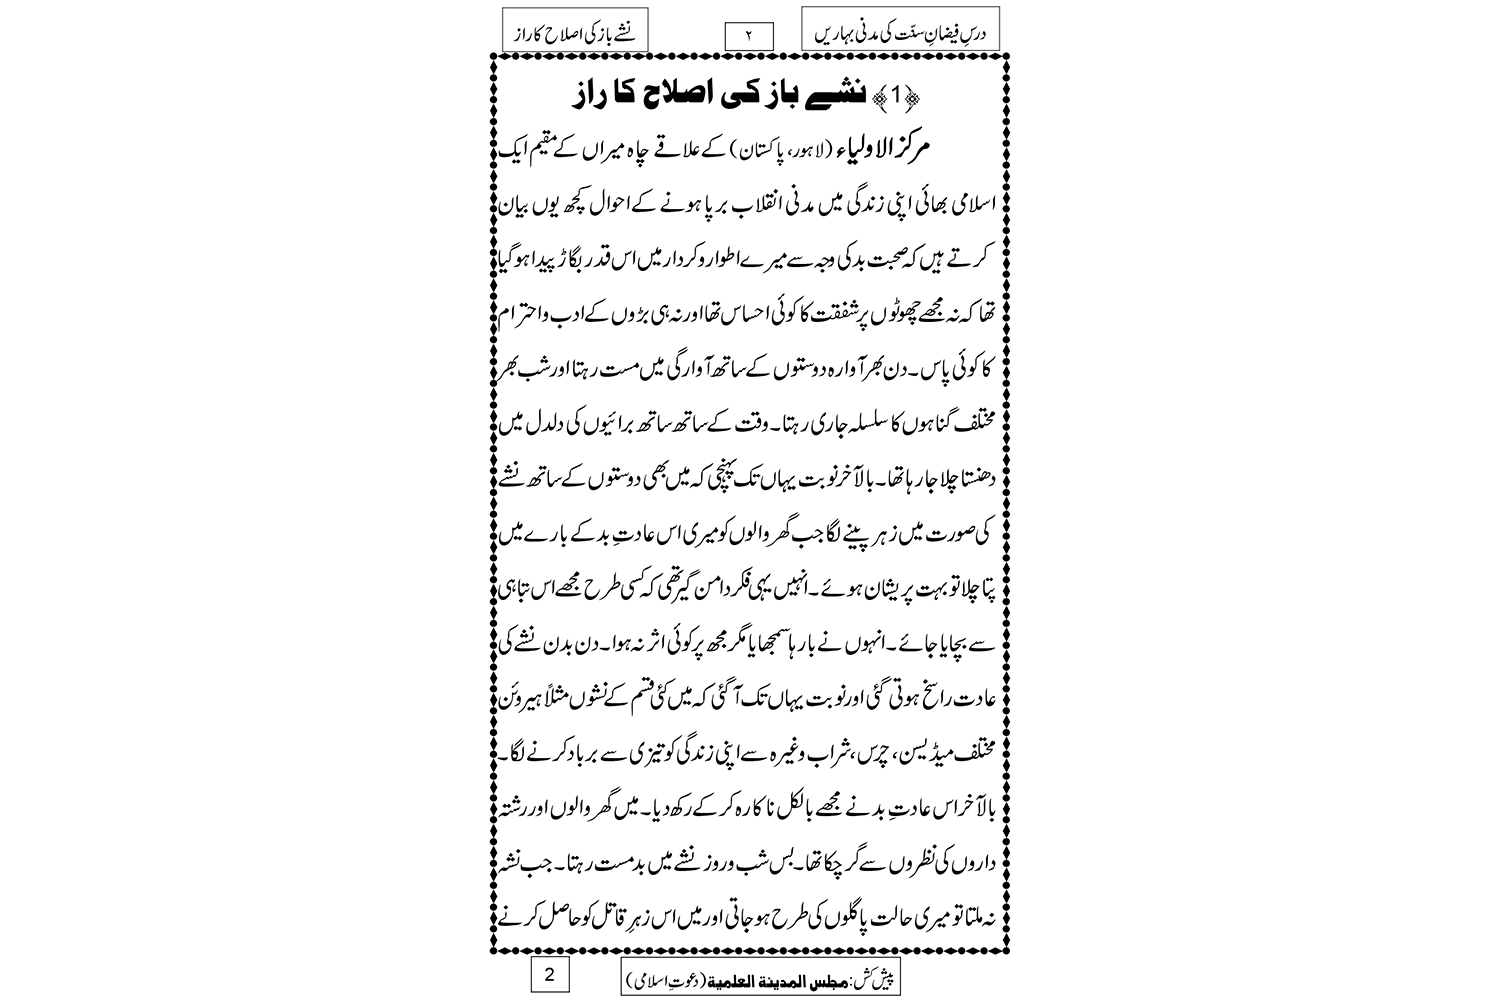 درسِ فیضانِ سنّت کی مدنی بہاریں
۲
نشے باز کی اصلاح کا راز
﴿1﴾ نشے باز کی اصلاح کا راز
مرکز الاولیاء (لاہور، پاکستان) کے علاقے چاہ میراں کے مقیم ایک
اسلامی بھائی اپنی زندگی میں مدنی انقلاب برپا ہونے کے احوال کچھ یوں بیان
کرتے ہیں کہ صحبت بد کی وجہ سے میرے اطوار و کردار میں اس قدر بگاڑ پیدا ہو گیا
تھا کہ نہ مجھے چھوٹوں پر شفقت کا کوئی احساس تھا اور نہ ہی بڑوں کے ادب و احترام
کا کوئی پاس۔ دن بھر آوارہ دوستوں کے ساتھ آوارگی میں مست رہتا اور شب بھر
مختلف گناہوں کا سلسلہ جاری رہتا۔ وقت کے ساتھ ساتھ برائیوں کی دلدل میں
دھنستا چلا جا رہا تھا۔ بالآخر نوبت یہاں تک پہنچی کہ میں بھی دوستوں کے ساتھ نشے
کی صورت میں زہر پینے لگا جب گھر والوں کو میری اس عادتِ بد کے بارے میں
پتا چلا تو بہت پریشان ہوئے۔ انہیں یہی فکر دامن گیر تھی کہ کسی طرح مجھے اس تباہی
سے بچایا جائے۔ انہوں نے بارہا سمجھایا مگر مجھ پر کوئی اثر نہ ہوا۔ دن بدن نشے کی
عادت راسخ ہوتی گئی اور نوبت یہاں تک آ گئی کہ میں کئی قسم کے نشوں مثلاً ہیروئن
مختلف میڈیسن، چرس، شراب وغیرہ سے اپنی زندگی کو تیزی سے برباد کرنے لگا۔
بالآخر اس عادتِ بد نے مجھے بالکل ناکارہ کر کے رکھ دیا۔ میں گھر والوں اور رشتہ
داروں کی نظروں سے گر چکا تھا۔ بس شب و روز نشے میں بدمست رہتا۔ جب نشہ
نہ ملتا تو میری حالت پاگلوں کی طرح ہو جاتی اور میں اس زہرِ قاتل کو حاصل کرنے
پیش کش: مجلس المدینة العلمیة (دعوتِ اسلامی)
2